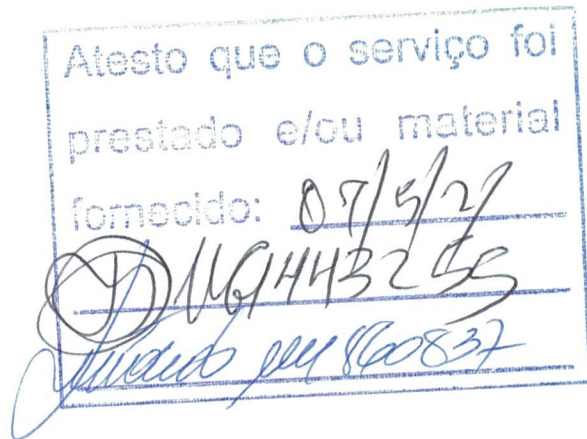 Atesto que o serviço foi
prestado e/ou material
fornecido: 07/5/21
MG1443255
860837